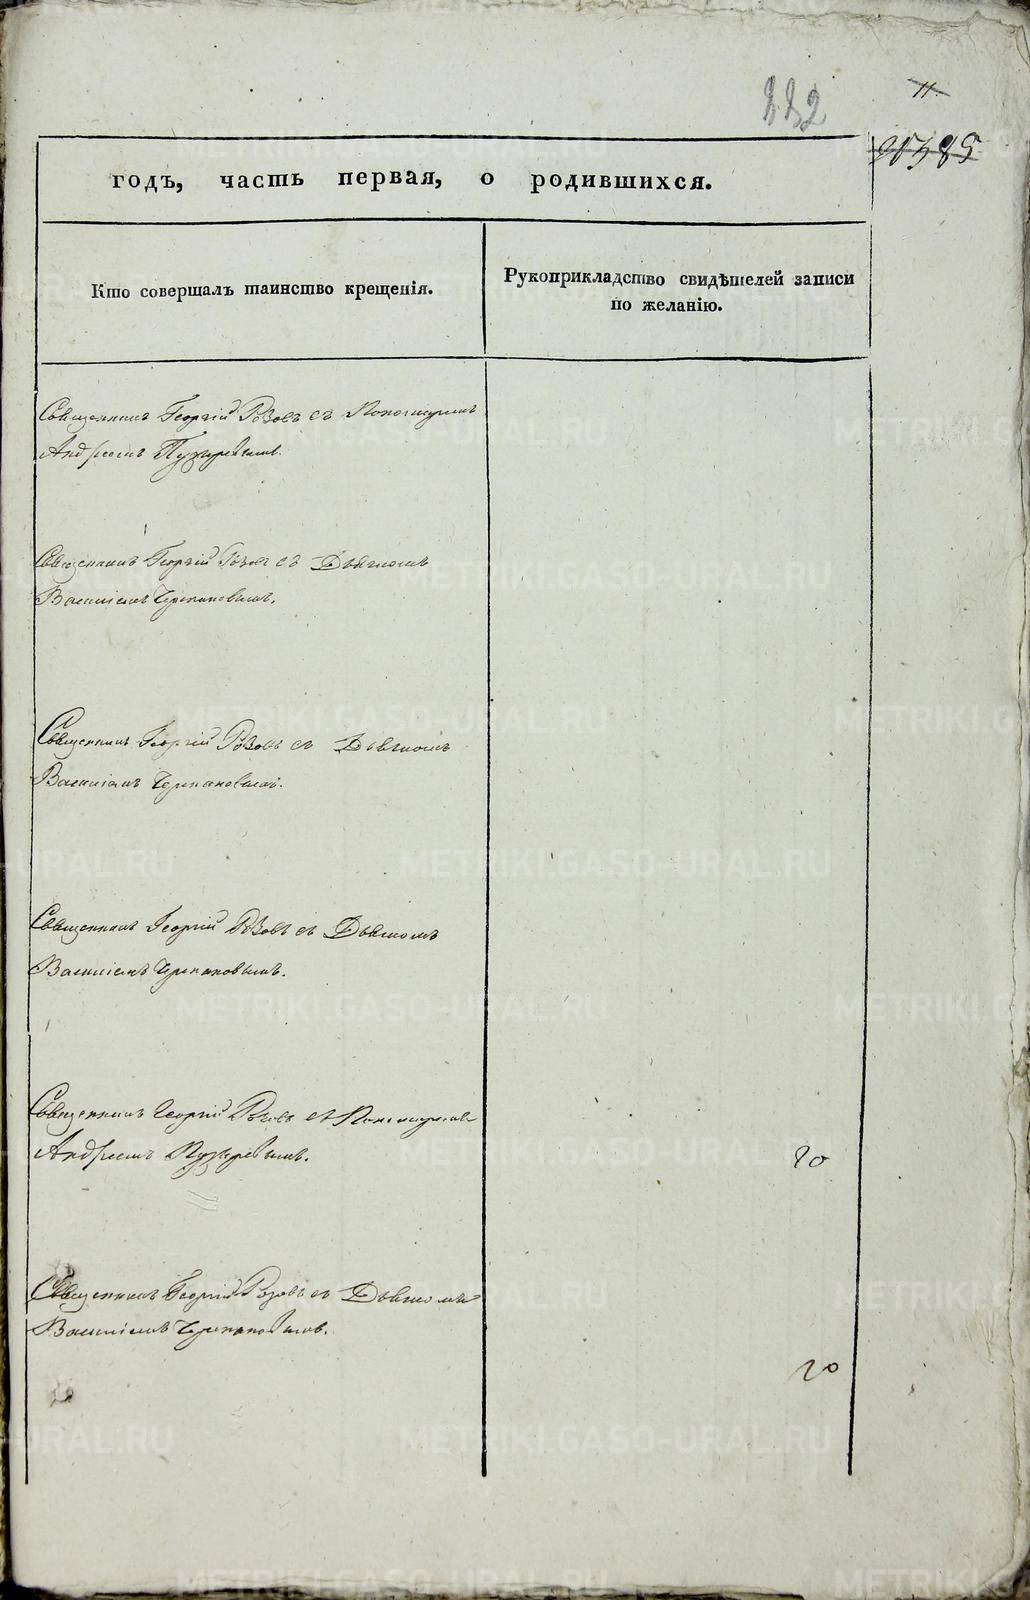 222
11.
годъ, часть первая, о родившихся.
Кто совершалъ таинство крещенія.
Рукоприкладство свидѣтелей записи
по желанію.
Священникъ Георгій Розовъ съ Пономаремъ
Андреемъ
Священникъ Георгій Розовъ съ Дьячкомъ
Василіемъ Черепановымъ.
Священникъ Георгій Розовъ съ Дьячкомъ
Василіемъ Черепановымъ.
Священникъ Георгій Розовъ съ Дьячкомъ
Василіемъ Черепановымъ.
Священникъ Георгій Розовъ съ Пономаремъ
Андреемъ
20
Священникъ Георгій Розовъ съ Дьячкомъ
Василіемъ Черепановымъ.
20
METRIKI.GASO-URAL.RU